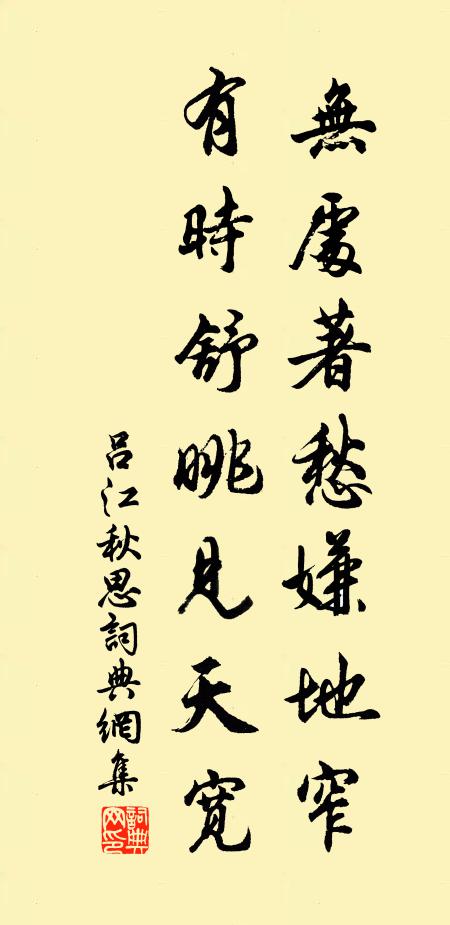 無處著愁嫌地窄
有時舒眺見天寬
呂江秋思詞典網集
詞典網印